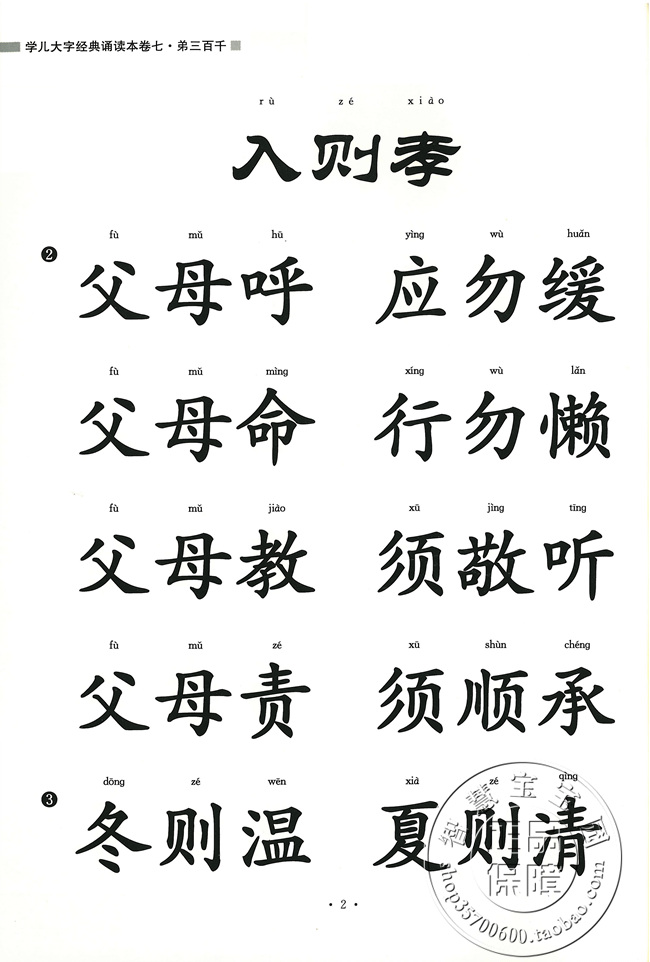 学儿大字经典诵读本卷七·弟三百千
rù zé xiào
入则孝
fù mǔ hū yìng wù huǎn
2 父母呼 应勿缓
fù mǔ mìng xíng wù lǎn
父母命 行勿懒
fù mǔ jiào xū jìng tīng
父母教 须敬听
fù mǔ zé xū shùn chéng
父母责 须顺承
dōng zé wēn xià zé qìng
3 冬则温 夏则清
智慧宝宝网
正品
保障
shop35700600.taobao.com
· 2 ·